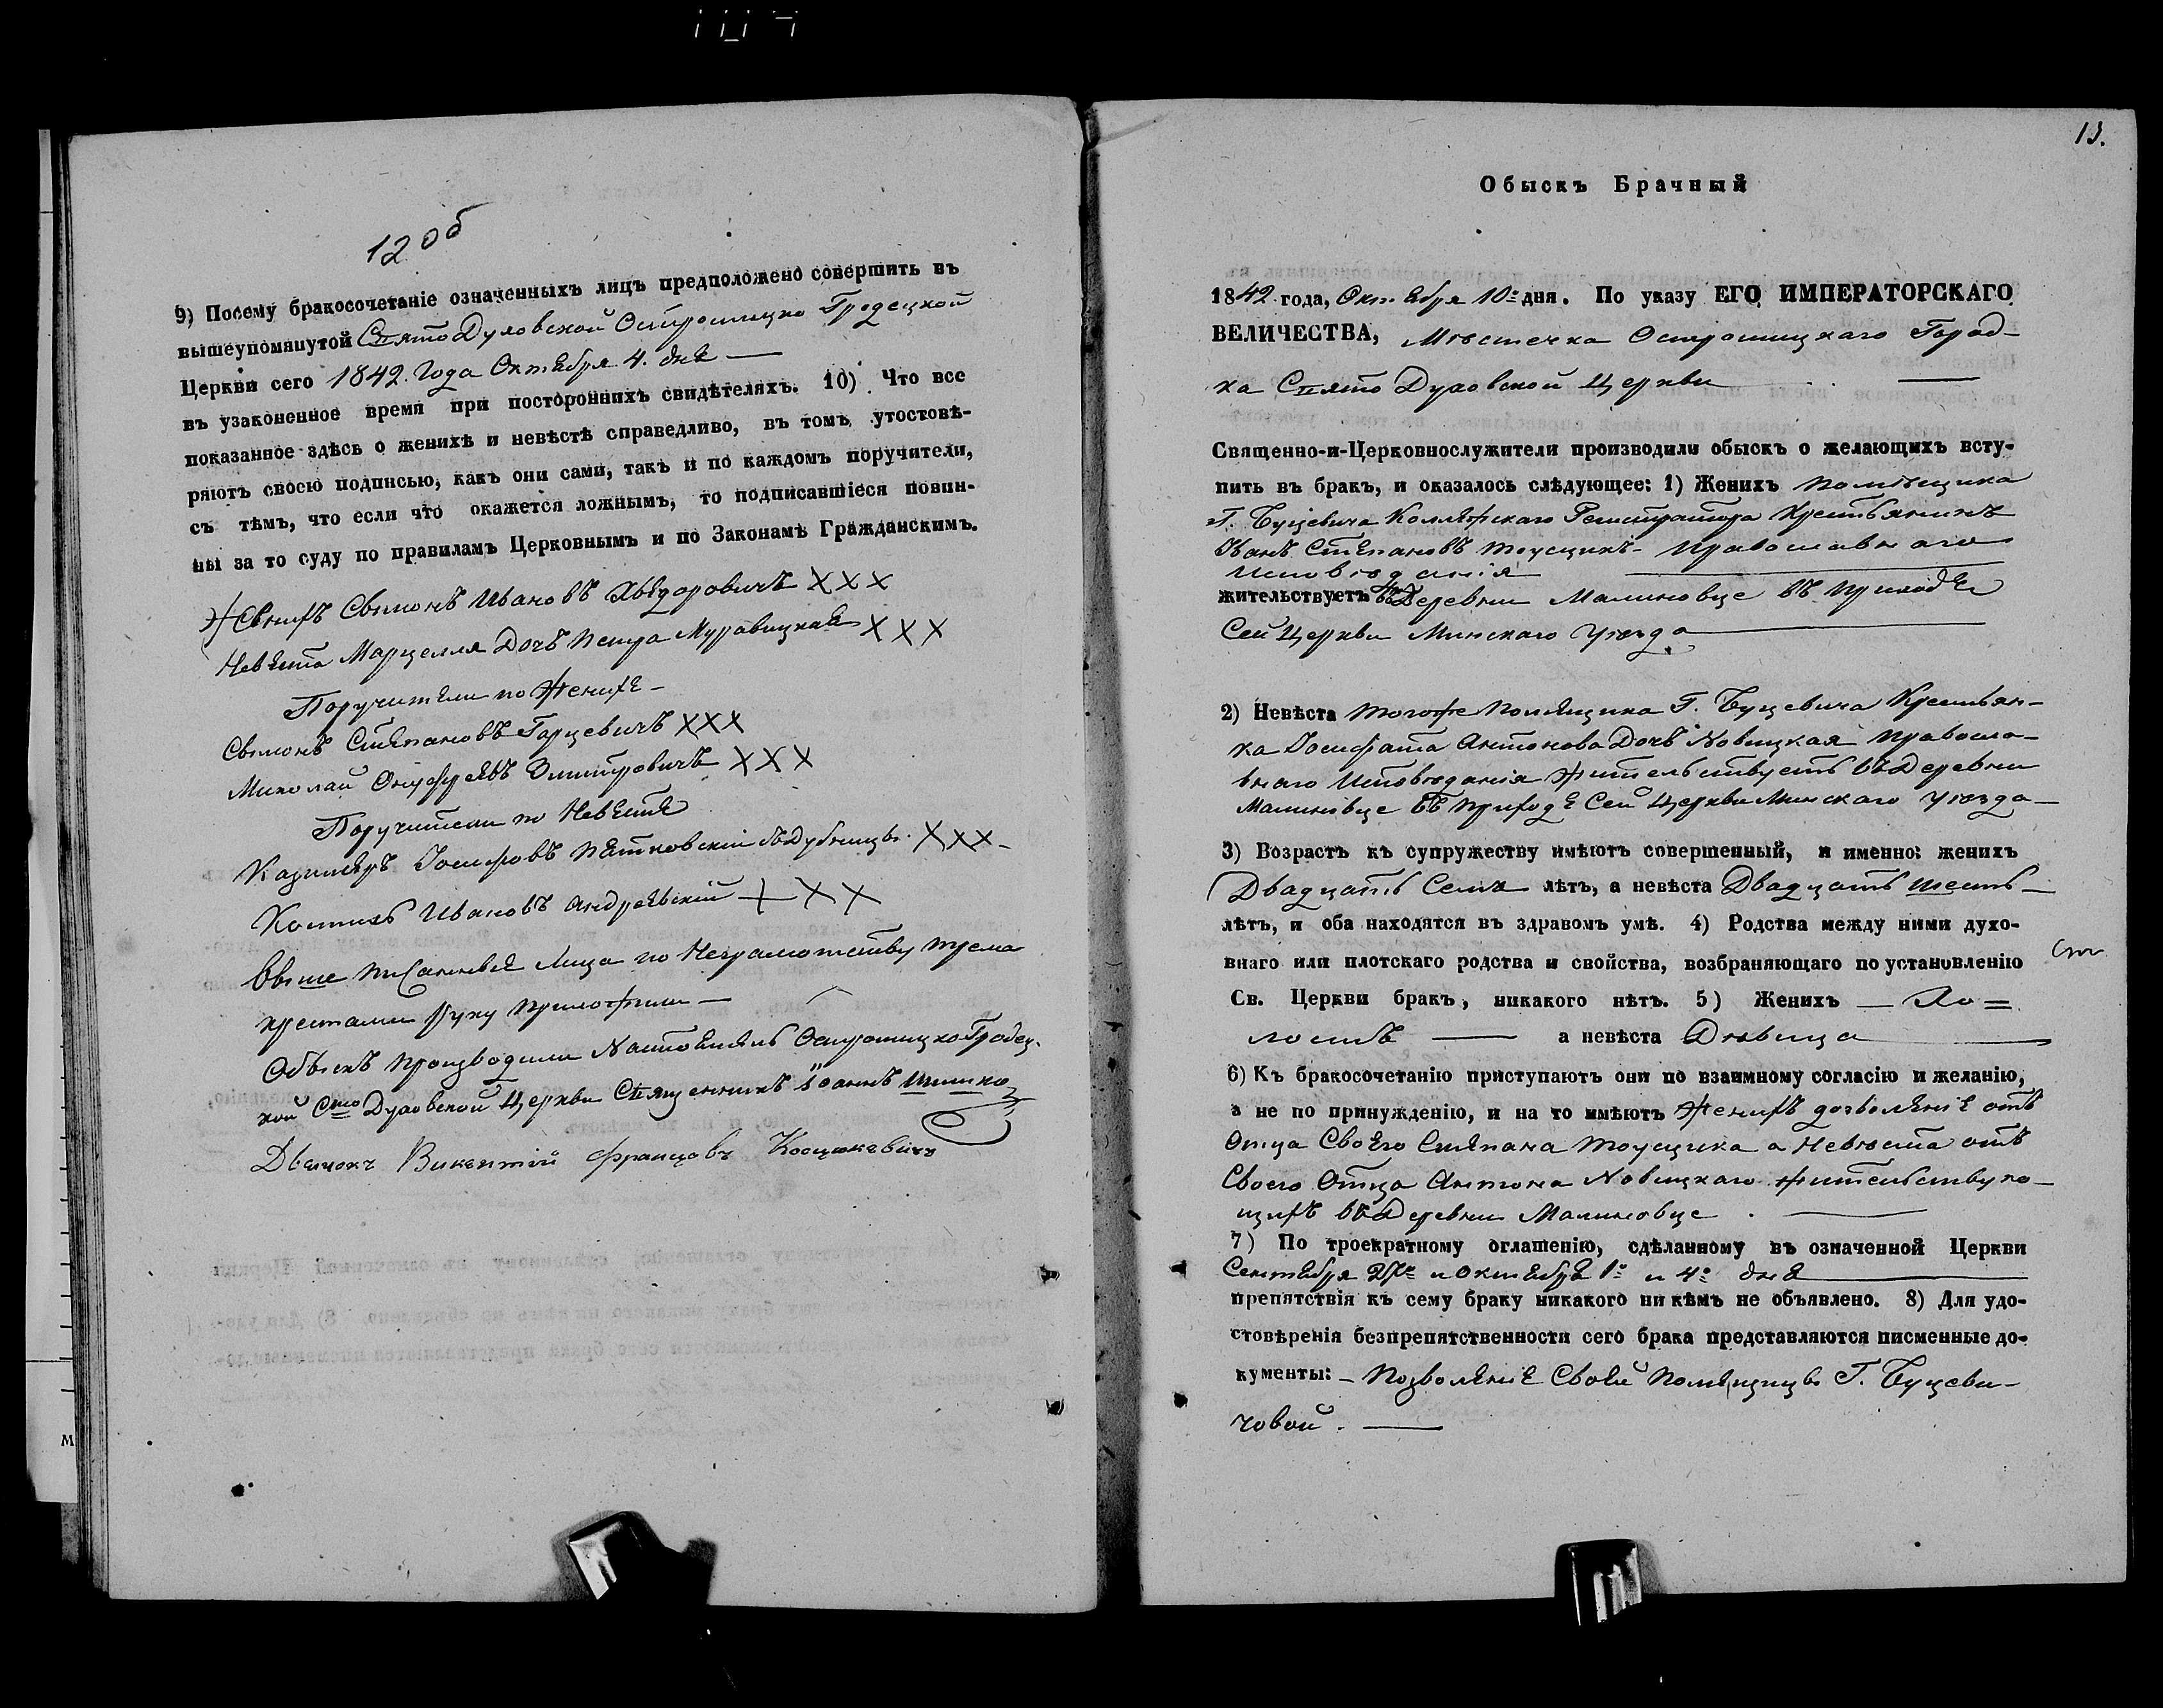 12 об
9) Посему бракосочетаніе означенныхъ лицъ предположено совершить въ
вышеупомянутой Свято Духовской Острошицко Гродецкой
Церкви сего 1842. Года Октября 4. дня —
въ узаконенное время при постороннихъ свидѣтеляхъ. 10) Что все
показанное здѣсь о женихѣ и невѣстѣ справедливо, въ томъ утостовѣ-
ряютъ своею подписью, какъ они сами, такъ и по каждомъ поручители,
съ тѣмъ, что если что окажется ложнымъ, то подписавшіеся повин-
ны за то суду по правиламъ Церковнымъ и по Законамъ Гражданскимъ.
Женихъ Сымонъ Ивановъ ХХХ
Невеста Марцелля Дочъ Петра Муравицкая ХХХ
Поручители по Женихе —
Сымонъ Степановъ Гарцевичъ ХХХ
Миколай Онуфреявъ Димитровичъ ХХХ
Поручители по Невесте
Казимеръ Іосифовъ Петковскій ХХХ
Ивановъ Андреевскій ХХХ
Выше писанные Лица по Неграмотству трема
крестами руку приложили —
Обыскъ производили Настоятель Острошицко Гродец-
кой Сто Духовской Церкви Священникъ Іоаннъ Шишко
Дьячокъ Викентій Францовъ Косцюкевичъ
13.
Обыскъ Брачный
1842 года, Октября 10 дня. По указу ЕГО ИМПЕРАТОРСКАГО
ВЕЛИЧЕСТВА, Мѣстечка Острошицкаго Город-
ка Свято Духовской Церкви
Священно-и-Церковнослужители производили обыскъ о желающихъ всту-
пить въ бракъ, и оказалось слѣдующее: 1) Женихъ помѣщика
Г. Буцевича Колляжскаго Регистратора Крестьянинъ
Иванъ Степановъ Тоусцикъ - Православнаго
Исповѣданія
жительствуетъ въ Деревни Малиновце въ приходе
Сей Церкви Минскаго Уѣзда
2) Невѣста тогоже Помещика Г. Буцевича Крестьян-
ка Іосифата Антонова Дочъ Новицкая Правосла-
внаго Исповѣданія жительствуетъ въ Деревни
Малиновце въ приходе Сей Церкви Минскаго Уѣзда —
3) Возрастъ къ супружеству имѣютъ совершенный, и именно: женихъ
Двадцать Семъ лѣтъ, а невѣста Двадцать шесть —
лѣтъ, и оба находятся въ здравомъ умѣ. 4) Родства между ними духо-
внаго или плотскаго родства и свойства, возбраняющаго по установленію
Св. Церкви бракъ, никакого нѣтъ. 5) Женихъ — Хо=
лостъ — а невѣста Дѣвица
6) Къ бракосочетанію приступаютъ они по взаимному согласію и желанію,
а не по принужденію, и на то имѣютъ Женихъ дозволеніе отъ
Отца Своего Степана Тоусцика а Невѣста отъ
Своего Отца Антона Новицкаго жительствую-
щихъ въ Деревни Малиновце .
7) По троекратному оглашенію, сдѣланному въ означенной Церкви
Сентября и Октября 1 и 4 дня
препятствія къ сему браку никакого ни кѣмъ не объявлено. 8) Для удо-
стовѣренія безпрепятственности сего брака представляются писменные до-
кументы: — Позволеніе Своей Помещицы Г. Буцеви-
човой . —